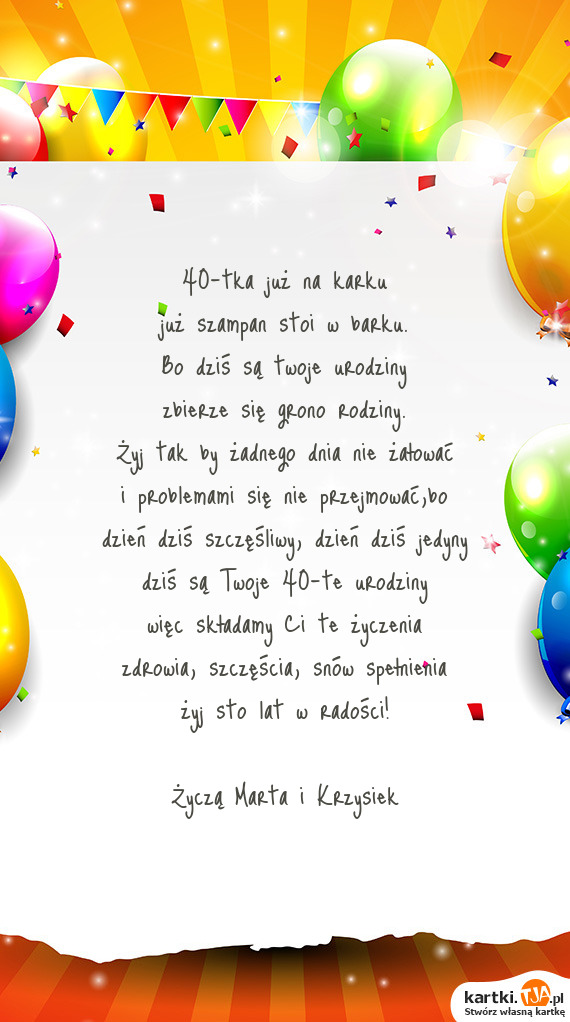 40-tka już na karku
już szampan stoi w barku.
Bo dziś są twoje urodziny
zbierze się grono rodziny.
Żyj tak by żadnego dnia nie żałować
i problemami się nie przejmować,bo
dzień dziś szczęśliwy, dzień dziś jedyny
dziś są Twoje 40-te urodziny
więc składamy Ci te życzenia
zdrowia, szczęścia, snów spełnienia
żyj sto lat w radości!
Życzą Marta i Krzysiek
kartki.TJA.pl
Stwórz własną kartkę